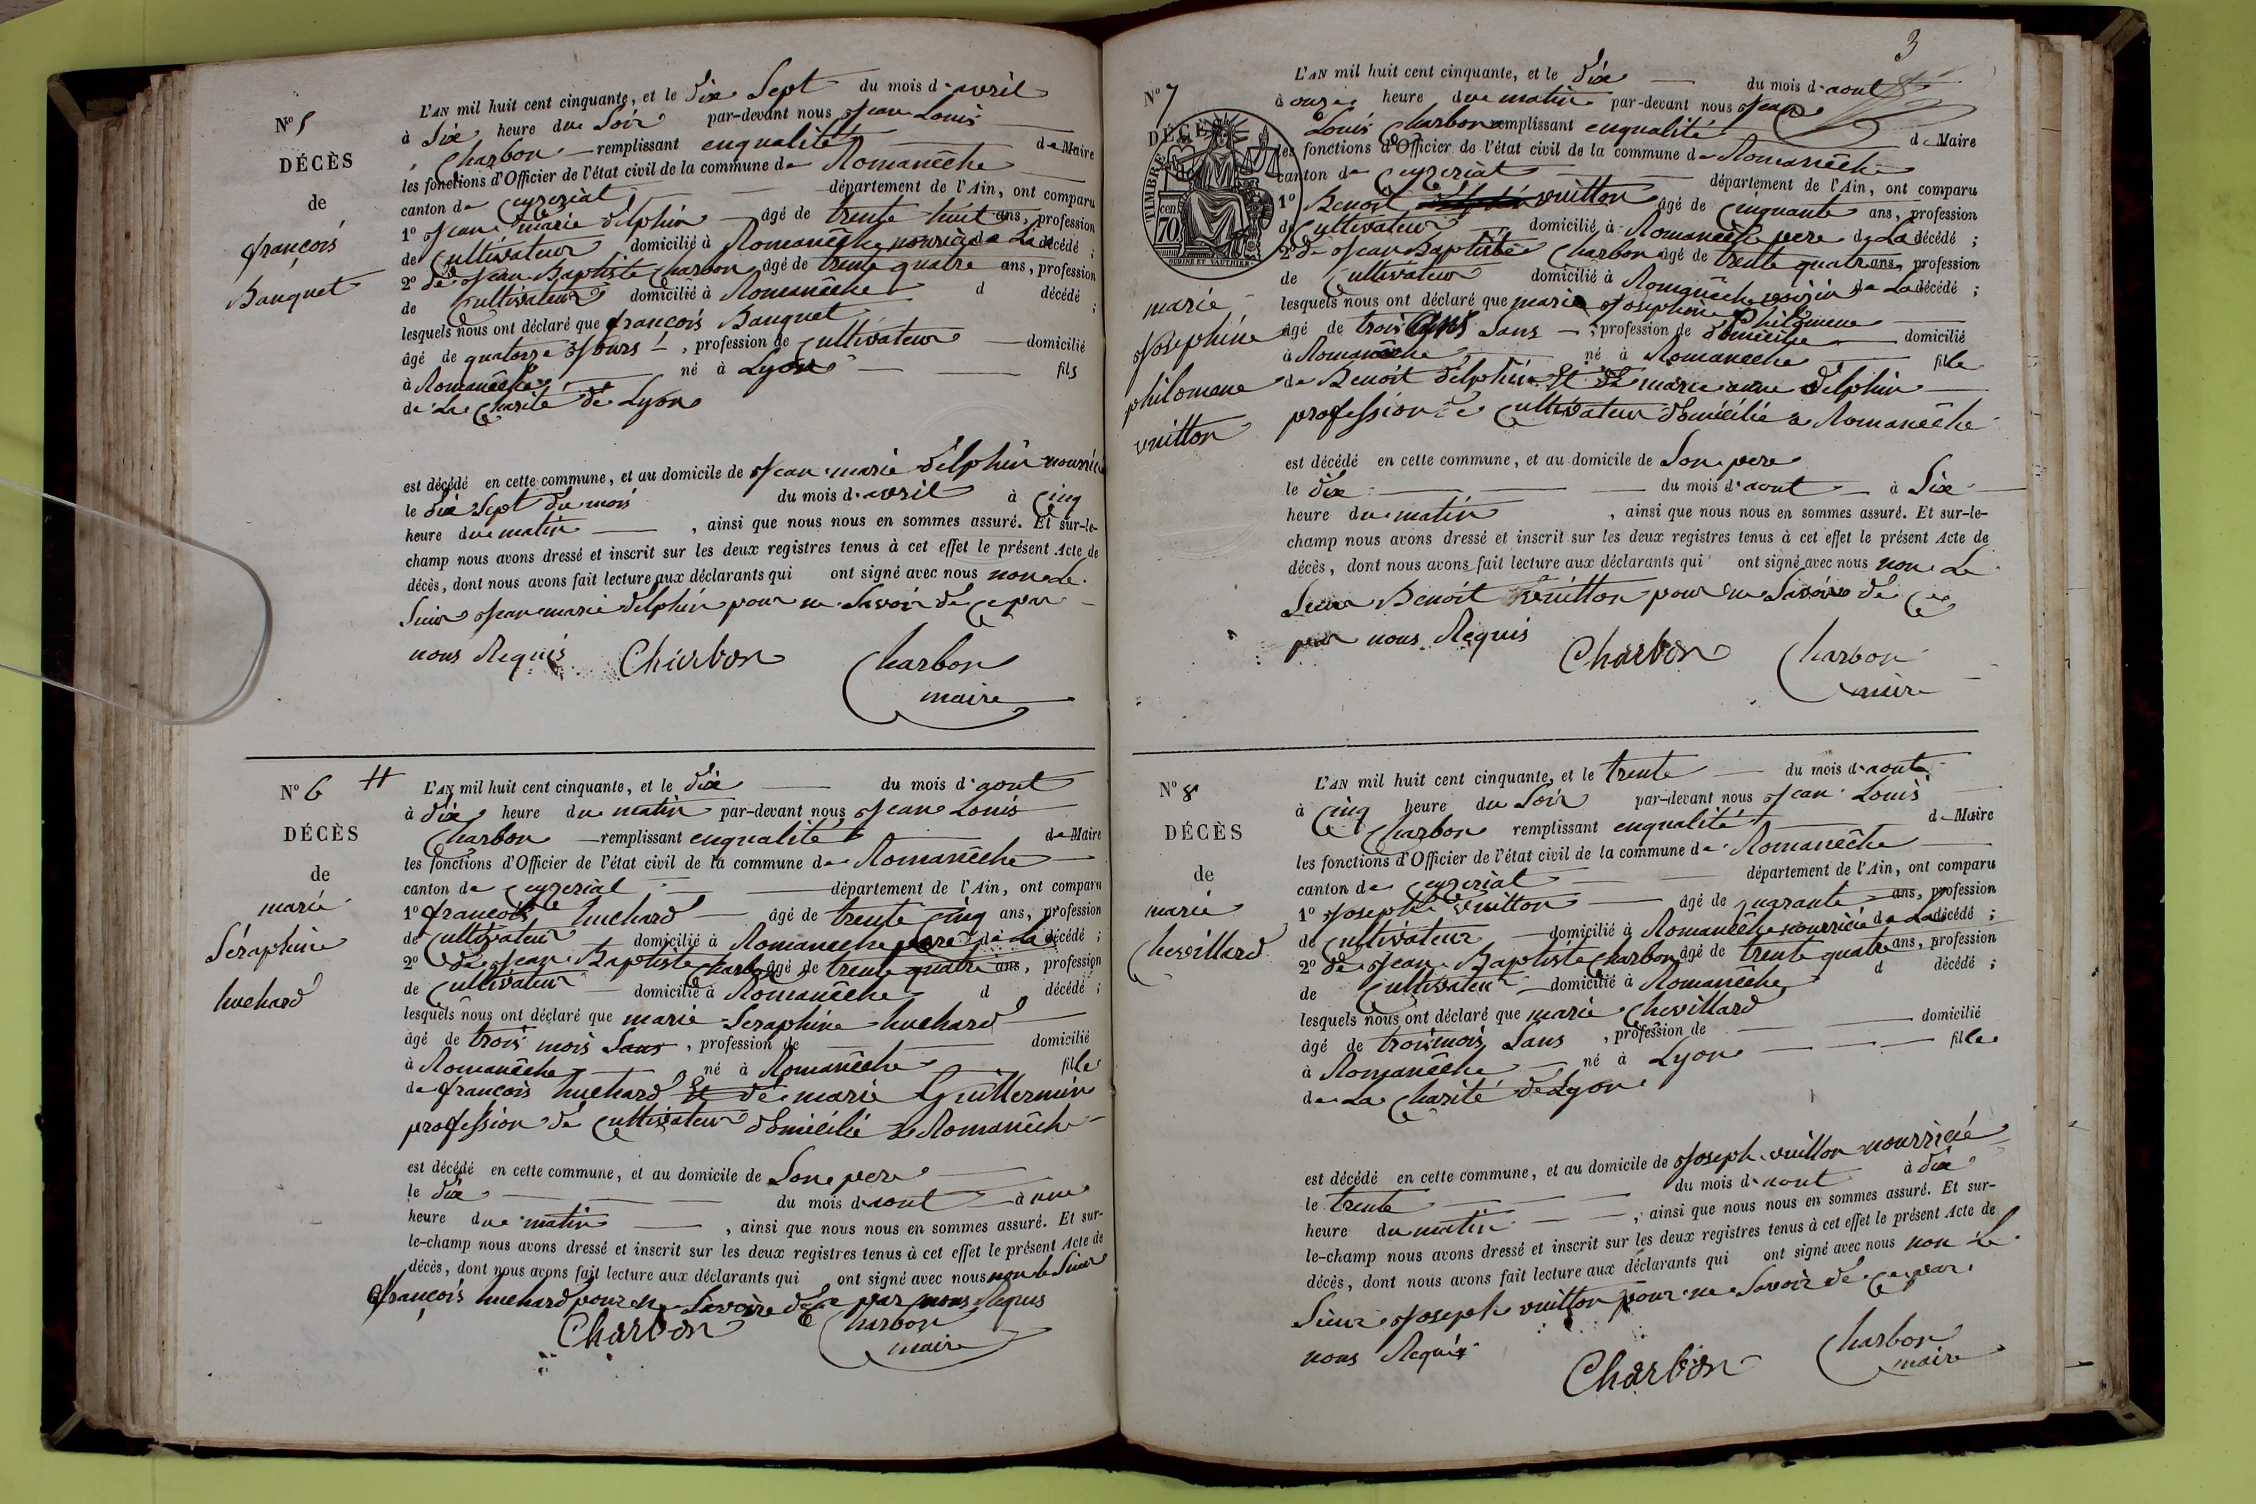 N° 5
DÉCÈS
de
françois
Banquet
L'AN mil huit cent cinquante, et le dix Sept du mois d'avril
à Six heure du Soir par-devant nous Jean Louis
Charbon remplissant enqualité de Maire
les fonctions d'Officier de l'état civil de la commune de Romanêche
canton de Ceyzeriat département de l'Ain, ont comparu
1° Jean marie délphin âgé de trente huit ans, profession
de Cultivateur domicilié à Romanêche nourricié de La décédé ;
2° de Jean Baptiste Charbon âgé de trente quatre ans, profession
de Cultivateur domicilié à Romanêche d décédé ;
lesquels nous ont déclaré que françois Banquet
âgé de quatorze Jours , profession de Cultivateur domicilié
à Romanêche né à Lyon fils
de La Charité de Lyon
est décédé en cette commune, et au domicile de Jean marie délphin nourricié
le dix Sept du mois du mois d'avril à Cinq
heure du matin , ainsi que nous nous en sommes assuré. Et sur-le-
champ nous avons dressé et inscrit sur les deux registres tenus à cet effet le présent Acte de
décès, dont nous avons fait lecture aux déclarants qui ont signé avec nous non Le
Sieur Jean marie délphin pour ne Savoir de Ce par
nous Requis Charbon Charbon
maire
N° 6 #
DÉCÈS
de
marie
Séraphine
huchard
L'AN mil huit cent cinquante, et le dix du mois d'aout
à dix heure du matin par-devant nous Jean Louis
Charbon remplissant enqualité de Maire
les fonctions d'Officier de l'état civil de la commune de Romanêche
canton de Ceyzeriat département de l'Ain, ont comparu
1° françois huchard âgé de trente Cinq ans, profession
de Cultivateur domicilié à Romaneche pere de La décédé ;
2° de Jean Baptiste Charbon âgé de trente quatre ans, profession
de Cultivateur domicilié à Romanêche d décédé ;
lesquels nous ont déclaré que marie Seraphine huchard
âgé de trois mois Sans , profession de domicilié
à Romanêche né à Romanêche fille
de françois huchard Et de marie Guillermin
profession de Cultivateur domicilié a Romanêche
est décédé en cette commune, et au domicile de Son pere
le dix du mois d'aout à une
heure du matin , ainsi que nous nous en sommes assuré. Et sur-
le-champ nous avons dressé et inscrit sur les deux registres tenus à cet effet le présent Acte de
décès, dont nous avons fait lecture aux déclarants qui ont signé avec nous non le Sieur
françois huchard pour ne Savoire de Ce par nous Requis
Charbon Charbon
maire
3
N° 7
DÉCÈS
TIMBRE
cen.
70
marie
Josephine
philomene
vuitton
L'AN mil huit cent cinquante, et le dix du mois d'aout
à onze heure du matin par-devant nous Jean
Louis Charbon remplissant enqualité de Maire
les fonctions d'Officier de l'état civil de la commune de Romanêche
canton de Ceyzeriat département de l'Ain, ont comparu
1° Benoit vuitton âgé de Cinquante ans, profession
de Cultivateur domicilié à Romanêche pere de La décédé ;
2° de Jean Baptiste Charbon âgé de trente quatre ans, profession
de Cultivateur domicilié à Romanêche voisin de La décédé ;
lesquels nous ont déclaré que marie Josephine Philomene
âgé de trois ans Sans , profession de domicilié
à Romanêche né à Romaneche fille
de Benoit délphin Et de marie anne délphin
profession de Cultivateur domicilié a Romanêche
est décédé en cette commune, et au domicile de Son pere
le dix du mois d'aout à Six
heure du matin , ainsi que nous nous en sommes assuré. Et sur-le-
champ nous avons dressé et inscrit sur les deux registres tenus à cet effet le présent Acte de
décès, dont nous avons fait lecture aux déclarants qui ont signé avec nous non Le
Sieur Benoit vuitton pour ne Savoire de Ce
par nous Requis Charbon Charbon
maire
N° 8
DÉCÈS
de
marie
Chevillard
L'AN mil huit cent cinquante, et le trente du mois d'aout
à Cinq heure du Soir par-devant nous Jean Louis
Charbon remplissant enqualité de Maire
les fonctions d'Officier de l'état civil de la commune de Romanêche
canton de Ceyzeriat département de l'Ain, ont comparu
1° Joseph vuitton âgé de quarante ans, profession
de Cultivateur domicilié à Romanêche nourricié de La décédé ;
2° de Jean Baptiste Charbon âgé de trente quatre ans, profession
de Cultivateur domicilié à Romanêche d décédé ;
lesquels nous ont déclaré que marie Chevillard
âgé de trois mois Sans , profession de domicilié
à Romanêche né à Lyon fille
de La Charité de Lyon
est décédé en cette commune, et au domicile de Joseph vuitton nourricié
le trente du mois d'aout à dix
heure du matin , ainsi que nous nous en sommes assuré. Et sur-
le-champ nous avons dressé et inscrit sur les deux registres tenus à cet effet le présent Acte de
décès, dont nous avons fait lecture aux déclarants qui ont signé avec nous non Le
Sieur Joseph vuitton pour ne Savoir de Ce par
nous Requis
Charbon Charbon
maire